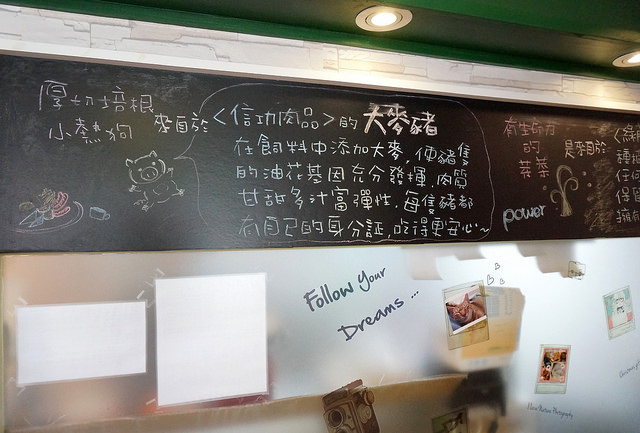 厚切培根
小熱狗
來自於
<信功肉品>的大麥豬
在飼料中添加大麥,使豬隻
的油花基因充分發揮,肉質
甘甜多汁富彈性,每隻豬都
有自己的身分証,吃得更安心~
有生命力
的
菜菜
是來自於:
power
種植
任何
保留
Follow Your
Dreams ...